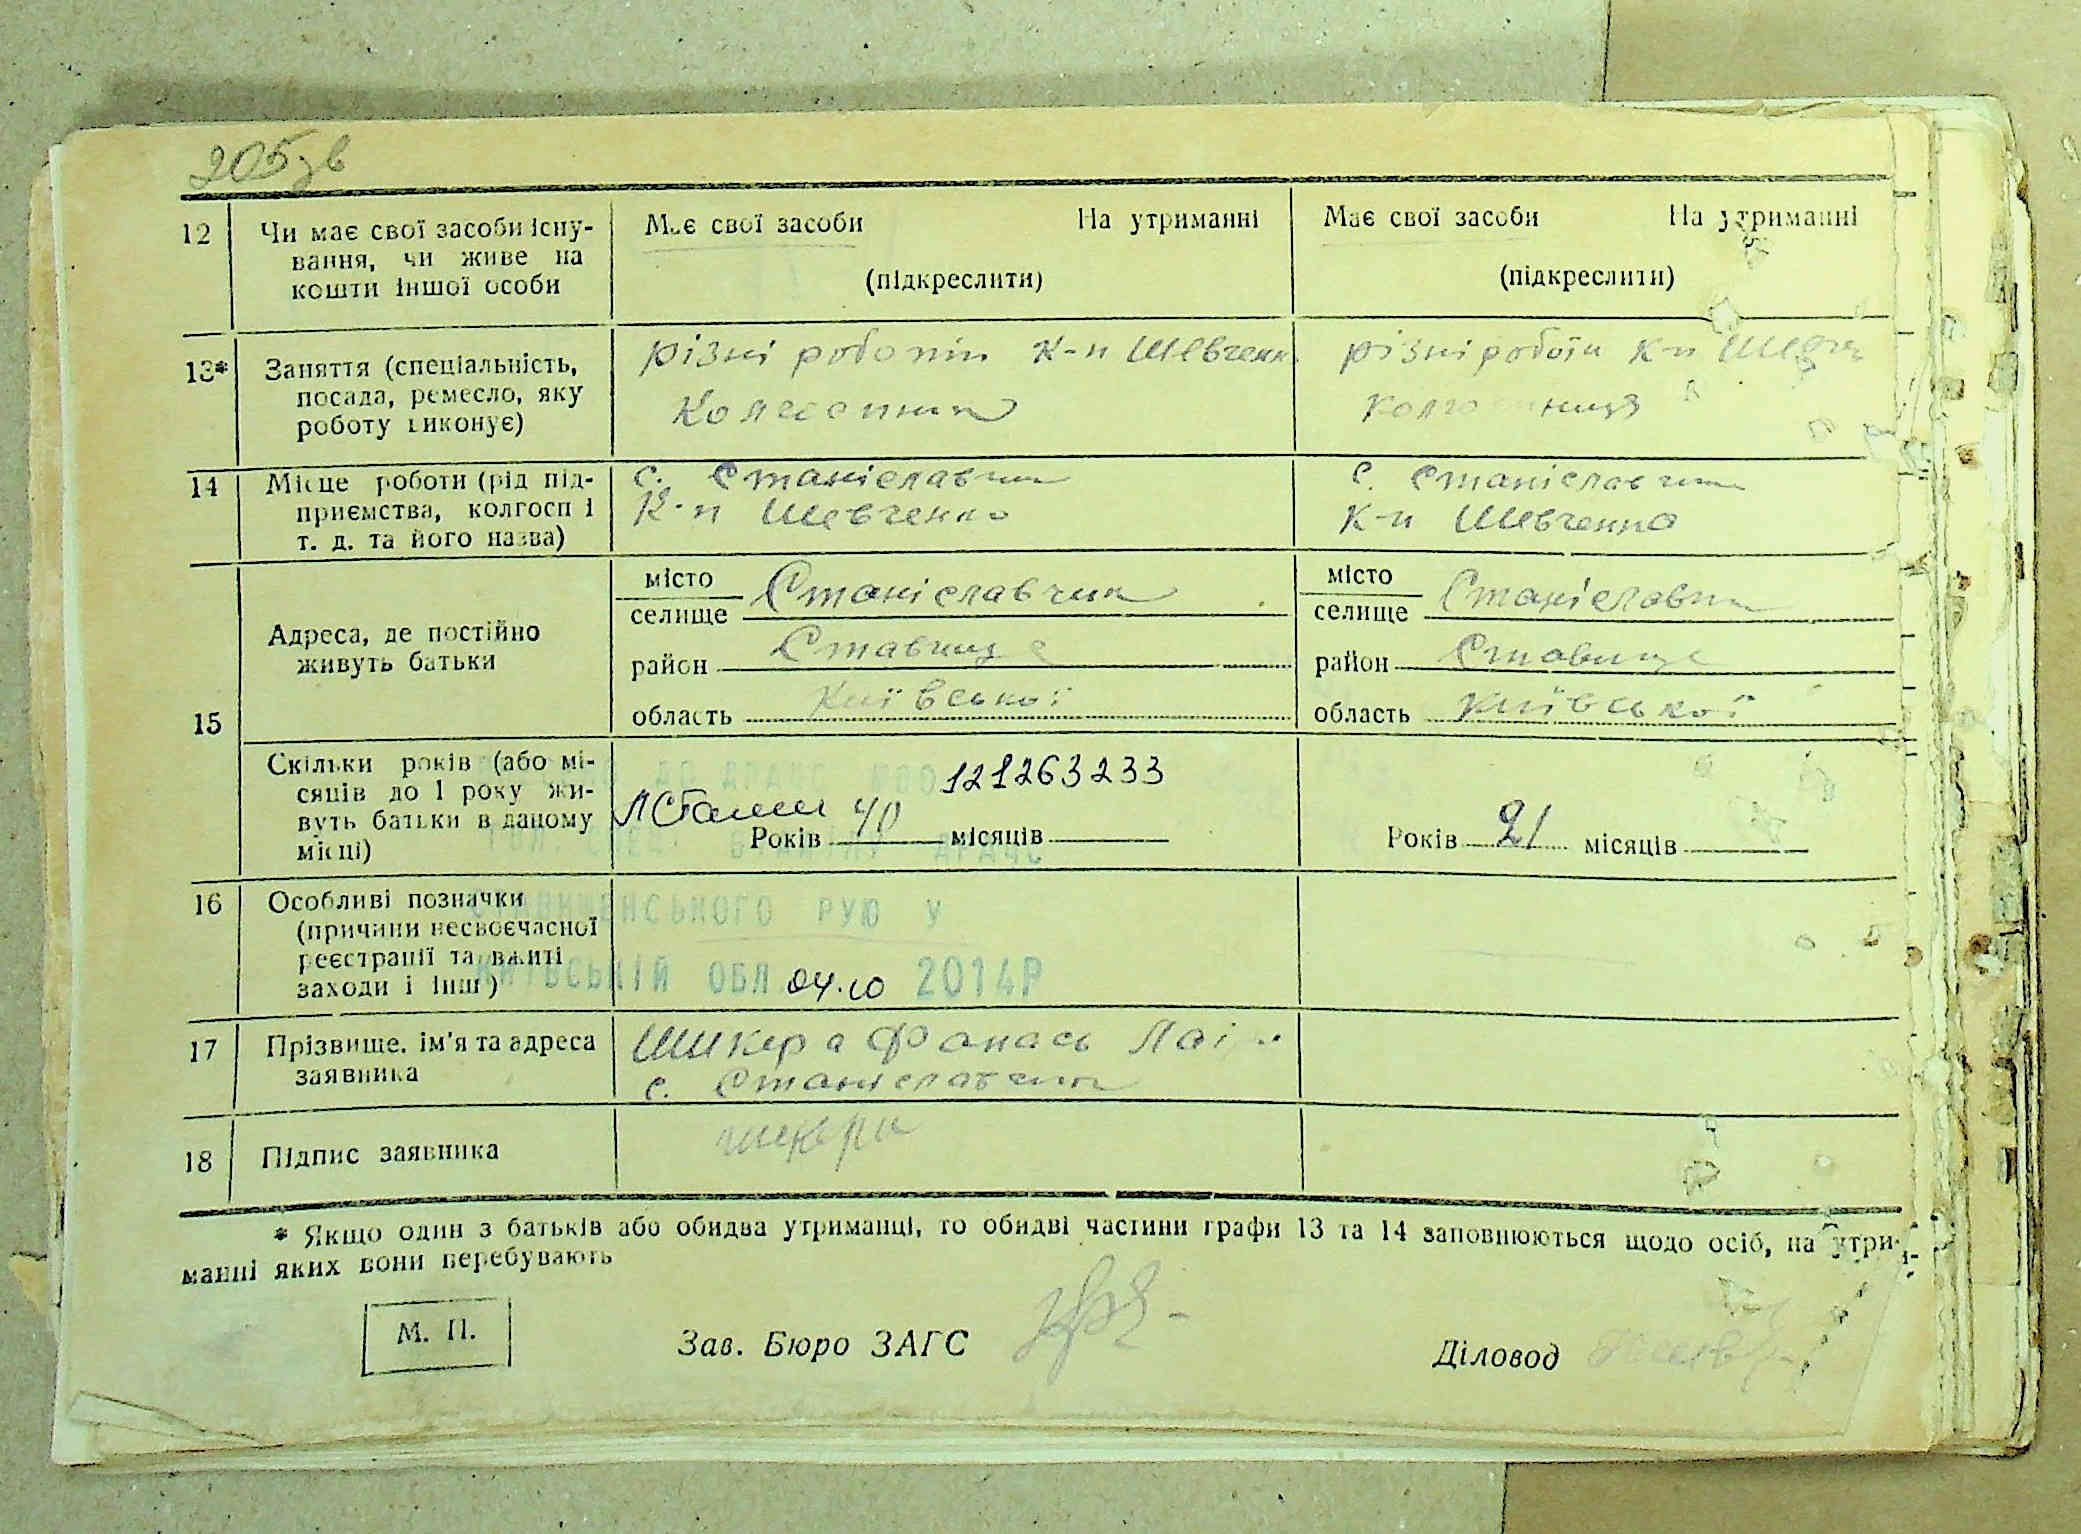 205зв
12 Чи має свої засоби існу- Має свої засоби На утриманні Має свої засоби На утриманні
вання, чи живе на
кошти іншої особи (підкреслити) (підкреслити)
13* Заняття (спеціальність, різні роботи к-п Шевченк різні роботи к-п Шевч
посада, ремесло, яку
роботу виконує) Колгоспник колгоспниця
14 Місце роботи (рід під- с. Станіславчик с. Станіславчик
приємства, колгосп і к-п Шевченко к-п Шевченко
т. д. та його назва)
місто Станіславчик місто Станіславчик
селище селище
15 Адреса, де постійно
живуть батьки район Ставище район Ставище
область Київської область Київської
Скільки років (або мі- 121263233
сяців до 1 року жи-
вуть батьки в даному Років 40 місяців Років 21 місяців
місці)
16 Особливі позначки
(причини несвоєчасної СТАВИЩЕНСЬКОГО РУЮ У
реєстрації та вжиті
заходи і інш) КИЇВСЬКІЙ ОБЛ 04.10 2014Р
17 Прізвище, ім'я та адреса Шикера Фанась
заявника с. Станіславчик
18 Підпис заявника шикера
* Якщо один з батьків або обидва утриманці, то обидві частини графи 13 та 14 заповнюються щодо осіб, на утри-
манні яких вони перебувають
М. П. Зав. Бюро ЗАГС Діловод